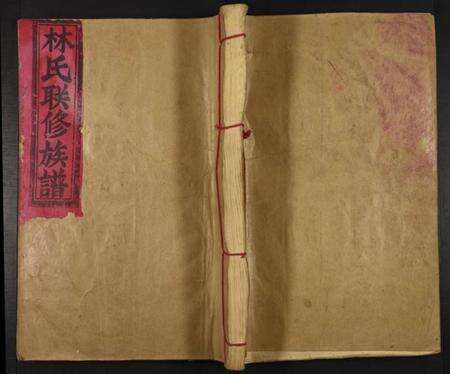 林氏联修族譜